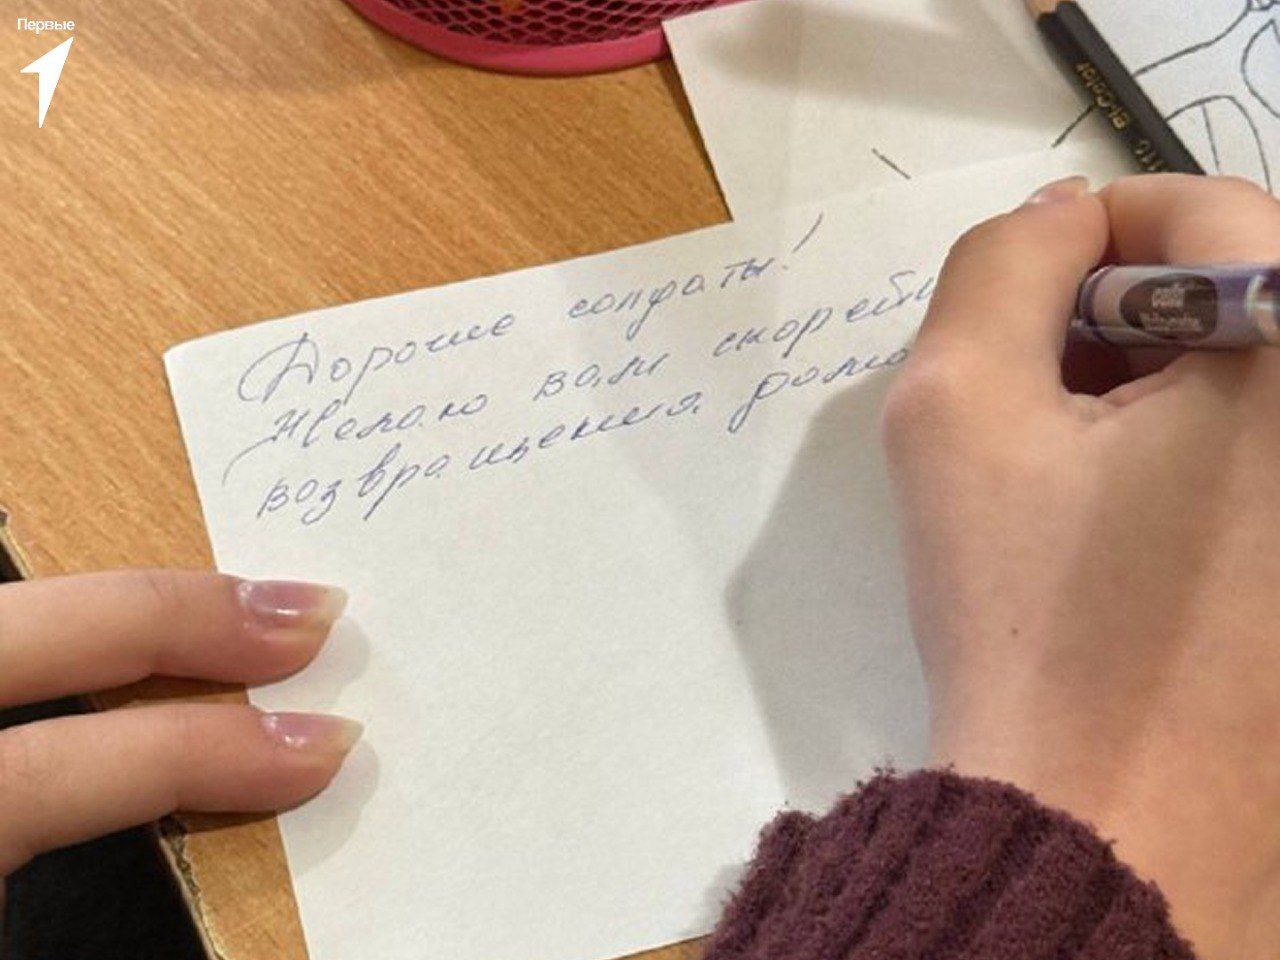 Первые
Дорогие солдаты!
Желаю вам скорей
возвращения домо
Bi-Color